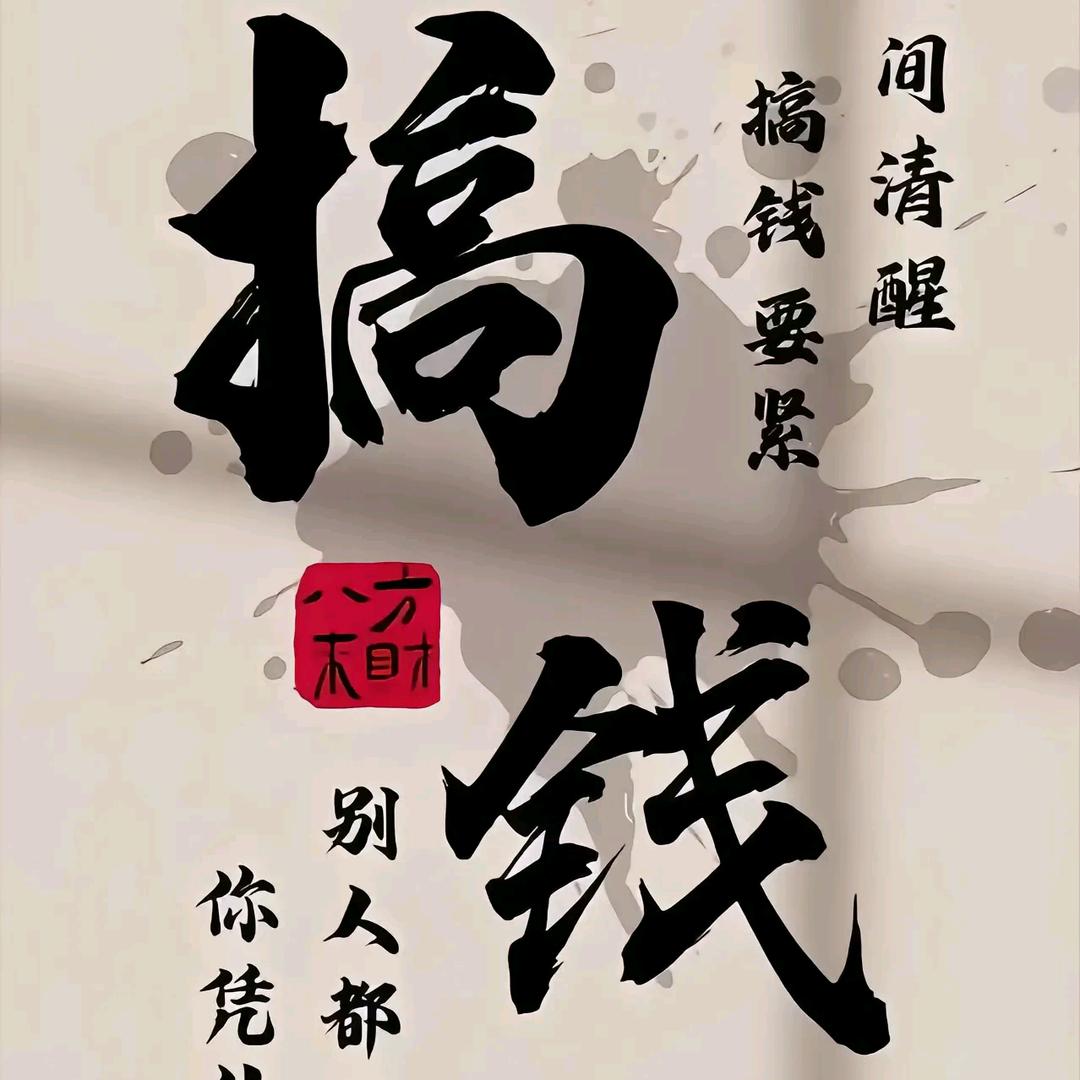 间清醒
搞钱要紧
搞钱
八方
来财
别人都
你凭